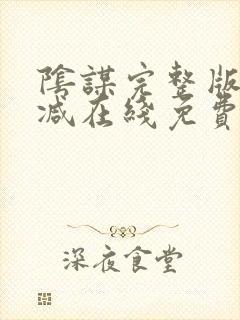 陰謀完整版
减在綫免費
深夜食堂